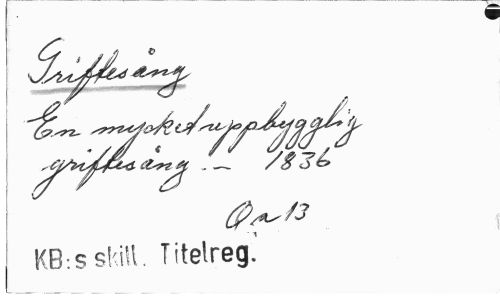 Griftesång
En mycket uppbygglig
griftesång. — 1836
Qa 13
KB:s skill. Titelreg.